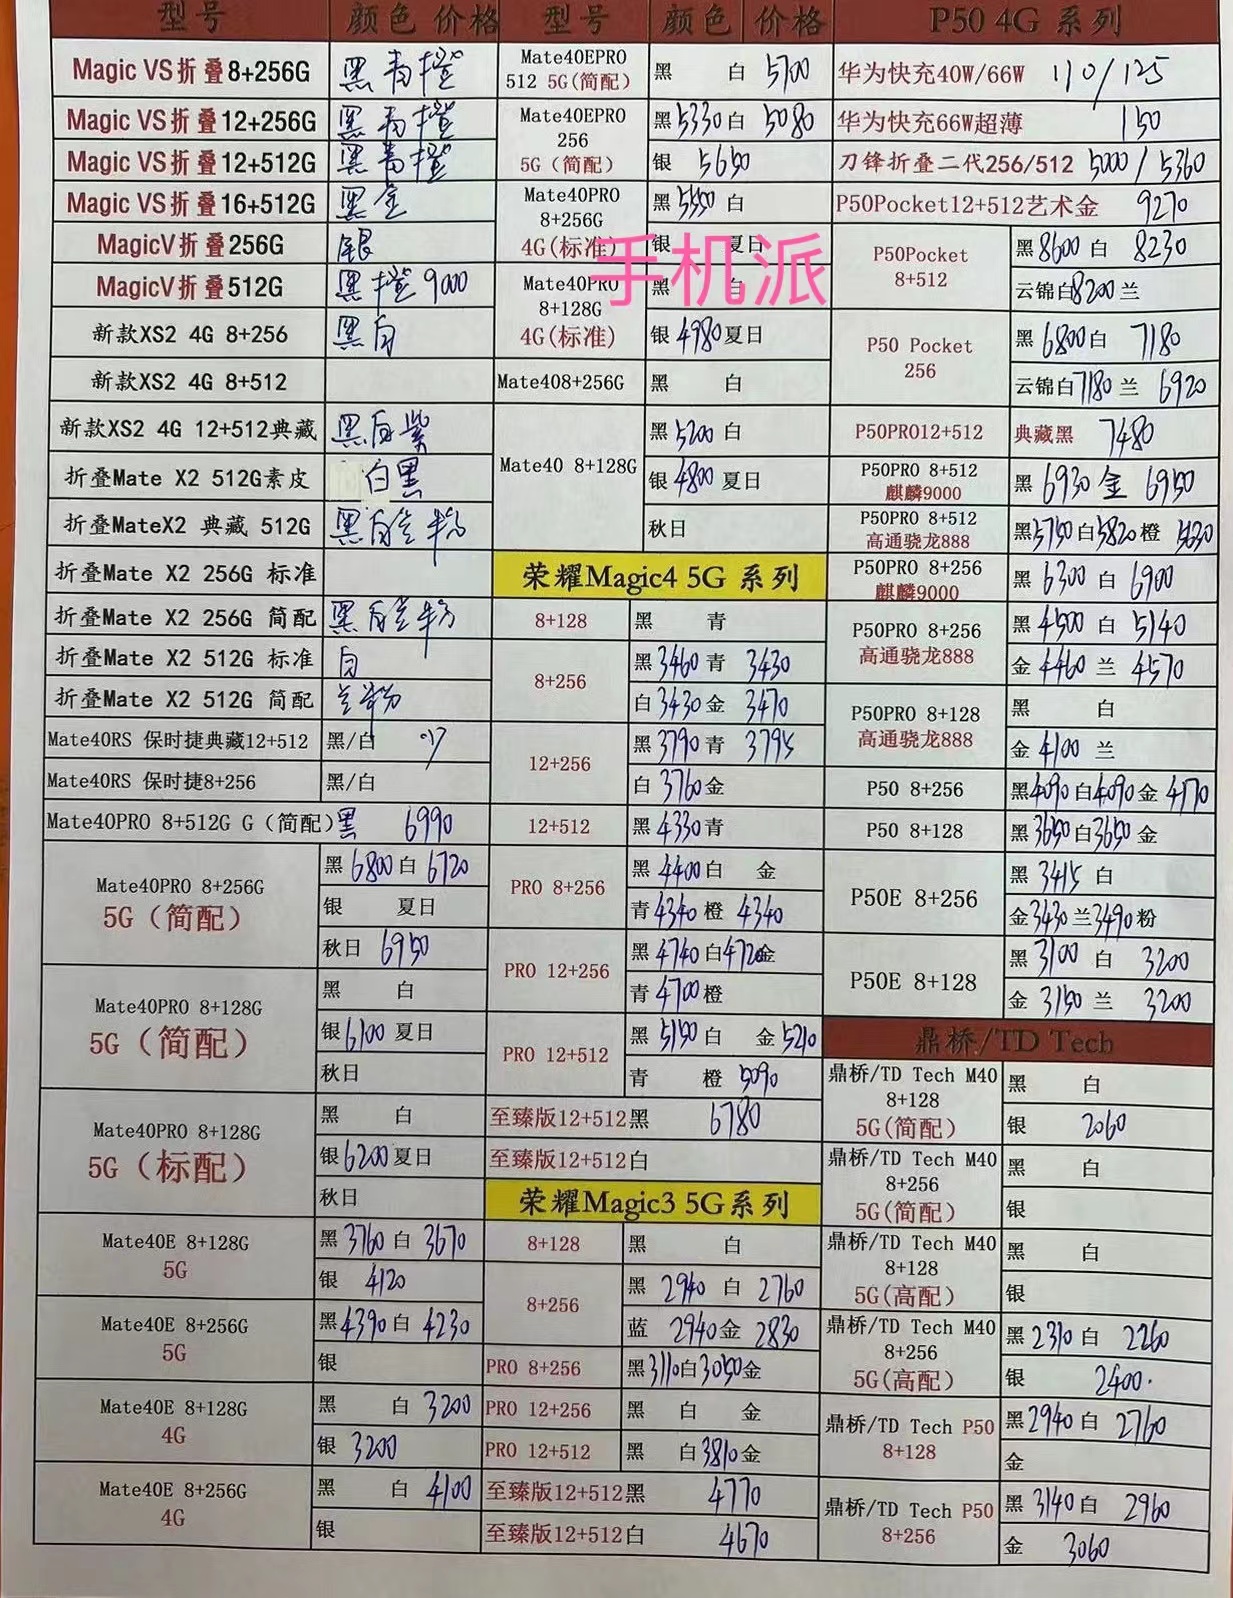 型号 颜色 价格
Magic VS折叠8+256G 黑 青 橙
Magic VS折叠12+256G 黑 青 橙
Magic VS折叠12+512G 黑 青 橙
Magic VS折叠16+512G 黑 金
MagicV折叠256G 银
MagicV折叠512G 黑 橙 9000
新款XS2 4G 8+256 黑 白
新款XS2 4G 8+512
新款XS2 4G 12+512典藏 黑 白 紫
折叠Mate X2 512G素皮 白 黑
折叠MateX2 典藏 512G 黑 白 兰 粉
折叠Mate X2 256G 标准
折叠Mate X2 256G 简配 黑 白 兰 粉
折叠Mate X2 512G 标准 白
折叠Mate X2 512G 简配 兰 粉
Mate40RS 保时捷典藏12+512 黑/白
Mate40RS 保时捷8+256 黑/白
Mate40PRO 8+512G G（简配） 黑 6990
Mate40PRO 8+256G
5G（简配）
黑 6800 白 6720
银 夏日
秋日 6950
Mate40PRO 8+128G
5G（简配）
黑 白
银 6100 夏日
秋日
Mate40PRO 8+128G
5G（标配）
黑 白
银 6200 夏日
秋日
Mate40E 8+128G
5G
黑 3760 白 3670
银 4120
Mate40E 8+256G
5G
黑 4390 白 4230
银
Mate40E 8+128G
4G
黑 白 3200
银 3200
Mate40E 8+256G
4G
黑 白 4100
银
型号 颜色 价格
Mate40EPRO
512 5G(简配)
黑 白 5700
Mate40EPRO
256
5G（简配）
黑 5330 白 5080
银 5650
Mate40PRO
8+256G
4G(标准)
黑 5550 白
银 夏日
手机派
Mate40PRO
8+128G
4G(标准)
黑 白
银 4980 夏日
Mate408+256G 黑 白
Mate40 8+128G
黑 5200 白
银 4800 夏日
秋日
荣耀Magic4 5G 系列
8+128 黑 青
8+256
黑 3460 青 3430
白 3430 金 3470
12+256
黑 3790 青 3795
白 3760 金
12+512 黑 4330 青
PRO 8+256
黑 4400 白 金
青 4340 橙 4340
PRO 12+256
黑 4740 白 4720 金
青 4700 橙
PRO 12+512
黑 5150 白 金 5210
青 橙 5090
至臻版12+512黑 6780
至臻版12+512白
荣耀Magic3 5G系列
8+128 黑 白
8+256
黑 2940 白 2760
蓝 2940 金 2830
PRO 8+256 黑 3110 白 3050 金
PRO 12+256 黑 白 金
PRO 12+512 黑 白 3810 金
至臻版12+512黑 4770
至臻版12+512白 4670
P50 4G 系列
华为快充40W/66W 110/125
华为快充66W超薄 150
刀锋折叠二代256/512 5000/5360
P50Pocket12+512艺术金 9270
P50Pocket
8+512
黑 8600 白 8230
云锦白 8200 兰
P50 Pocket
256
黑 6800 白 7180
云锦白 7180 兰 6920
P50PRO12+512 典藏黑 7480
P50PRO 8+512
麒麟9000
黑 6930 金 6950
P50PRO 8+512
高通骁龙888
黑 5750 白 5820 橙
P50PRO 8+256
麒麟9000
黑 6300 白 6900
P50PRO 8+256
高通骁龙888
黑 4500 白 5140
金 4460 兰 4570
P50PRO 8+128
高通骁龙888
黑 白
金 4100 兰
P50 8+256 黑 4090 白 4090 金 4170
P50 8+128 黑 3650 白 3650 金
P50E 8+256
黑 3415 白
金 3430 兰 3490 粉
P50E 8+128
黑 3100 白 3200
金 3150 兰 3200
鼎桥/TD Tech
鼎桥/TD Tech M40
8+128
5G(简配)
黑 白
银 2060
鼎桥/TD Tech M40
8+256
5G(简配)
黑 白
银
鼎桥/TD Tech M40
8+128
5G(高配)
黑 白
银
鼎桥/TD Tech M40
8+256
5G(高配)
黑 2310 白 2260
银 2400.
鼎桥/TD Tech P50
8+128
黑 2940 白 2760
金
鼎桥/TD Tech P50
8+256
黑 3140 白 2960
金 3060